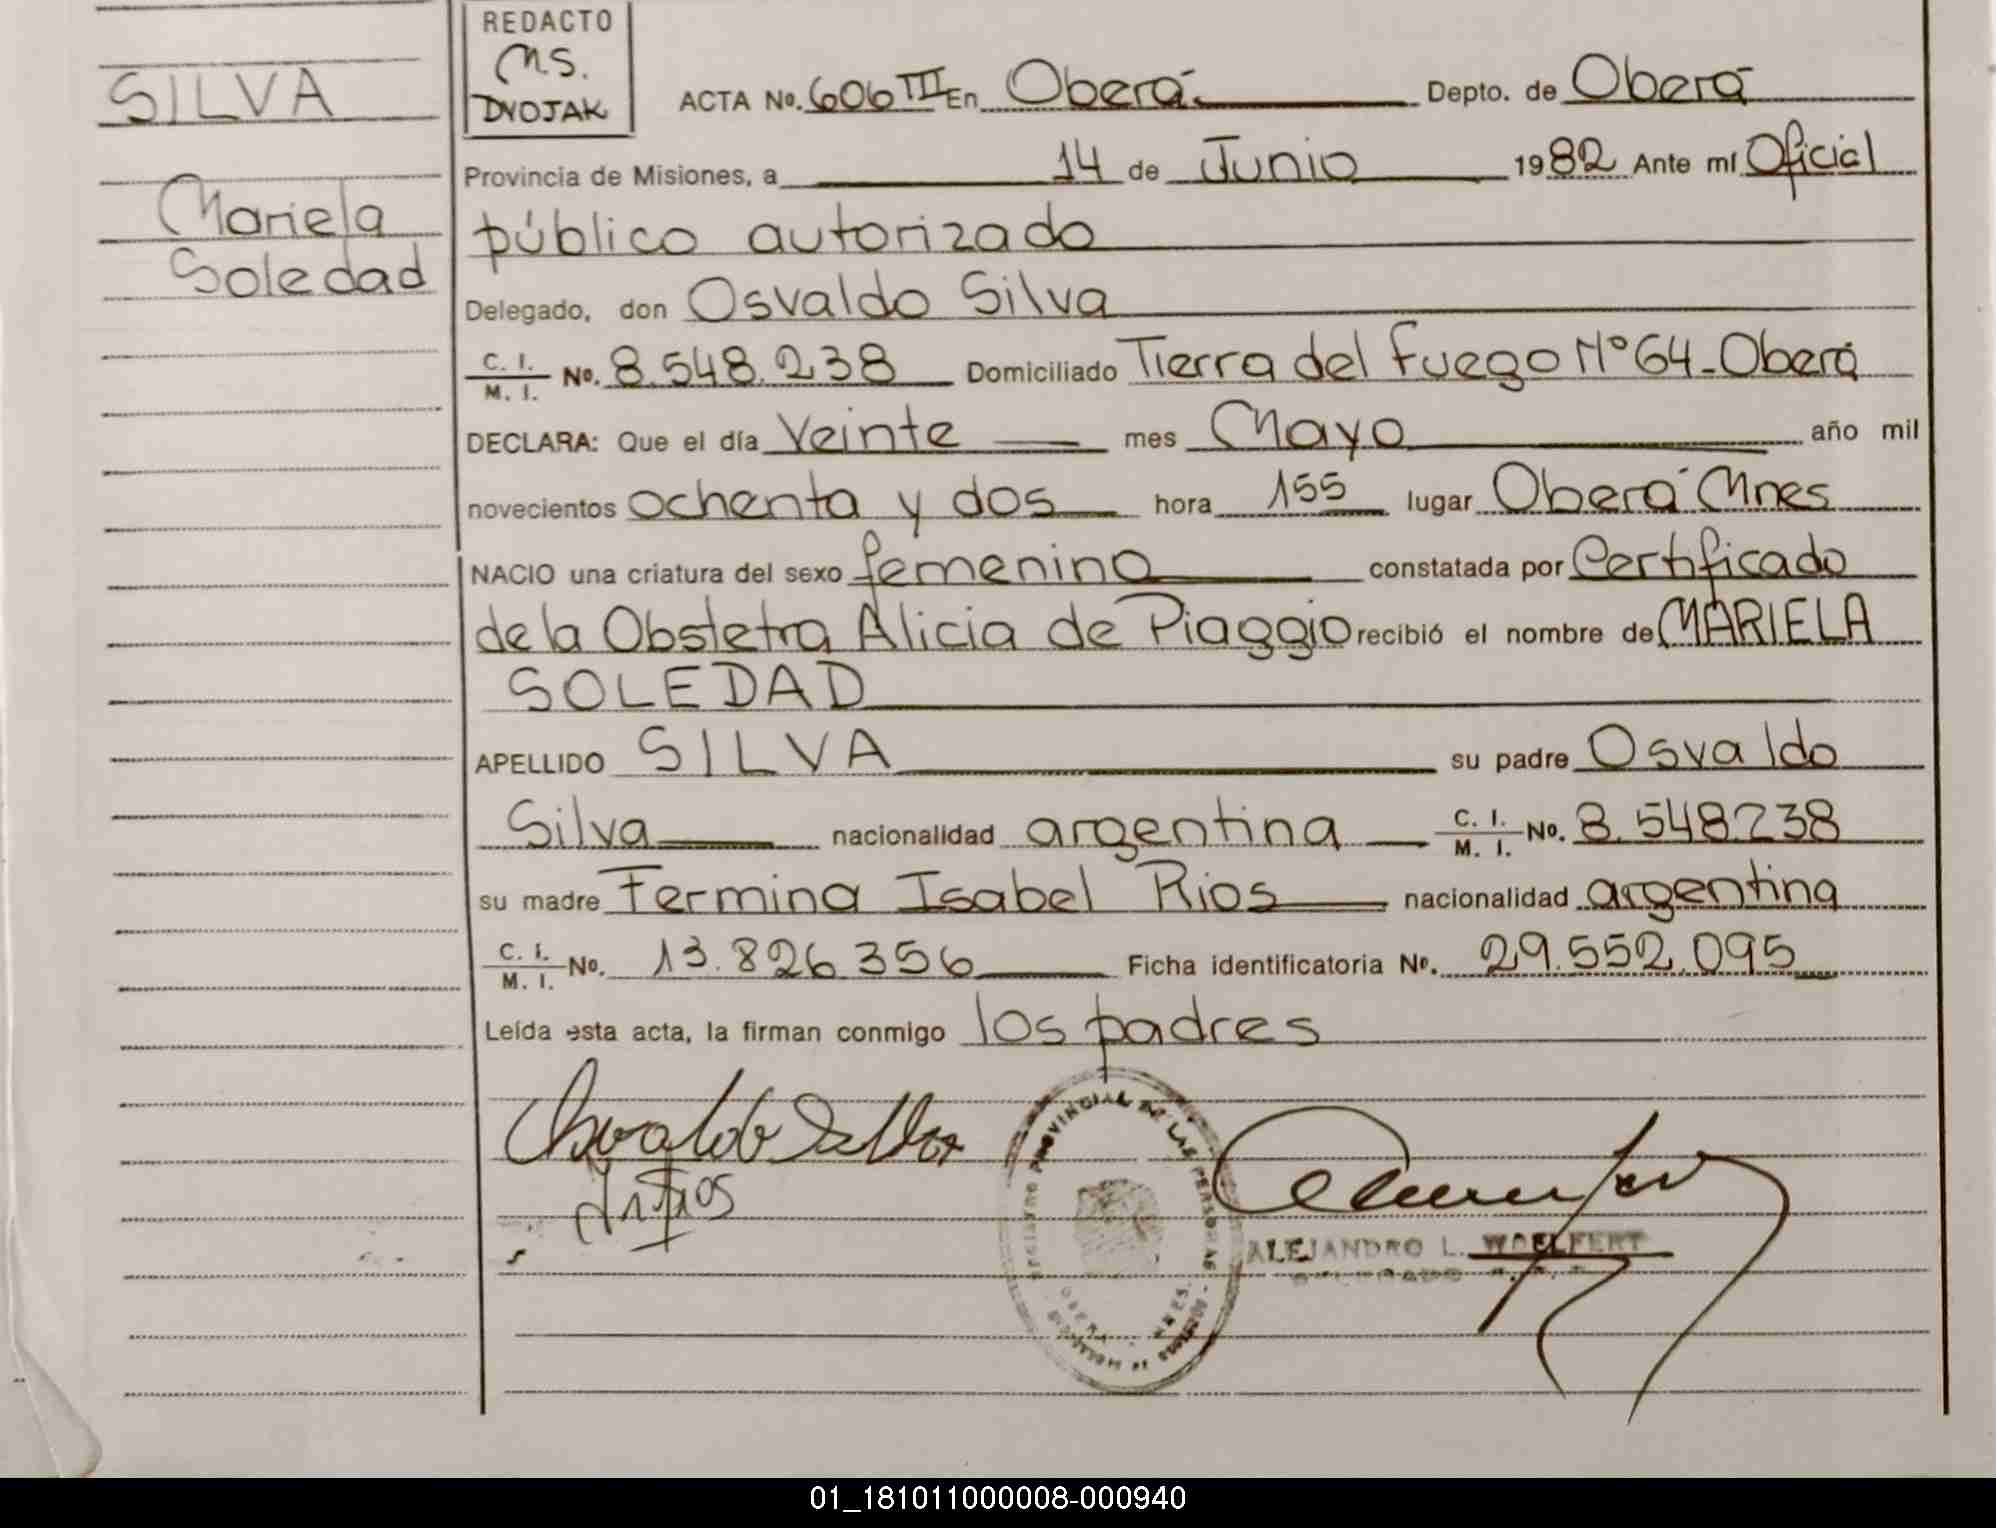 SILVA
Mariela
Soledad
REDACTO
M.S.
DVOJAK
ACTA No. 606 III En Oberá Depto. de Oberá
Provincia de Misiones, a 14 de Junio 1982 Ante mí Oficial
público autorizado
Delegado, don Osvaldo Silva
C. I. / M. I. No. 8.548.238 Domiciliado Tierra del Fuego Nº 64-Oberá
DECLARA: Que el día Veinte mes Mayo año mil
novecientos ochenta y dos hora 155 lugar Oberá Mnes
NACIO una criatura del sexo femenino constatada por Certificado
de la Obstetra Alicia de Piaggio recibió el nombre de MARIELA
SOLEDAD
APELLIDO SILVA su padre Osvaldo
Silva nacionalidad argentina C. I. / M. I. No. 8.548238
su madre Fermina Isabel Rios nacionalidad argentina
C. I. / M. I. No. 13.826.356 Ficha identificatoria No. 29.552.095
Leída esta acta, la firman conmigo los padres
Osvaldo Silva
REGISTRO PROVINCIAL DE LAS PERSONAS
OBERA MNES.
ALEJANDRO L. WOELFERT
01_181011000008-000940